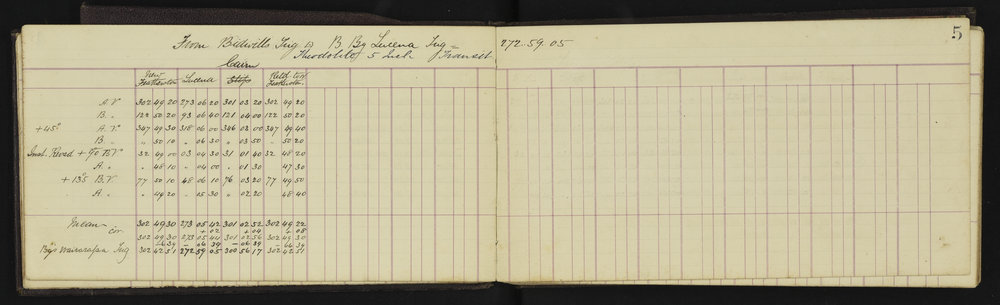 5
From Bidwills Trig to B. Bg Lucena Trig = 272.59.05
Theodolite 5 inch Transit
Cairn
New Featherston Lucena Stops Field Featherston
A.V. 302 49 20 273 06 20 301 03 20 302 49 20
B. „ 122 50 20 93 06 40 121 04 00 122 50 20
+45° A.V. 347 49 30 318 06 00 346 03 00 347 49 40
B „ „ 50 10 „ 06 30 „ 03 50 „ 50 20
Inst. Revsd + 90 B.V. 32 49 00 03 04 30 31 01 40 32 48 20
A. „ „ 48 10 „ 04 00 „ 01 30 47 30
+ 135 B.V. 77 50 10 48 06 10 76 03 20 77 49 50
A. „ „ 49 20 „ 05 30 „ 02 20 48 40
Mean 302 49 30 273 05 42 301 02 52 302 49 22
cor. + 02 + 04 + 08
302 49 30 273 05 44 301 02 56 302 49 30
- 6 39 - 06 39 - 06 39 - 06 39
Bgs Wairarapa Trig 302 42 51 272 59 05 300 56 17 302 42 51